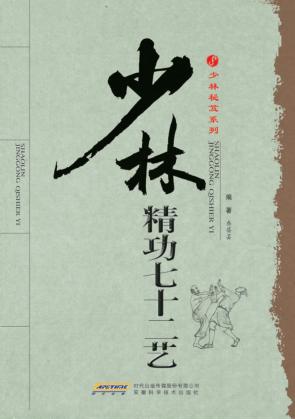 少林秘笈系列
少林
SHAOLIN
JINGGONG QISHIER YI
精功七十二艺
编著
SHAOLIN
JINGGONG QISHIER YI
时代出版传媒股份有限公司
安徽科学技术出版社